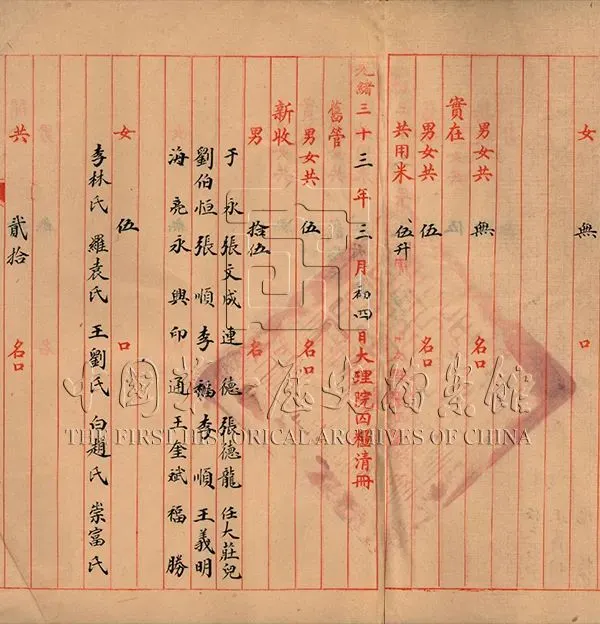 女 無 口
男女共 無 名口
實在
男女共 伍 名口
共用米 伍升
光緒三十三年三月初四日大理院囚糧清冊
舊管
男女共 伍 名口
新收
男 拾伍 名
于永 張文成 連德 張德龍 任大莊兒
劉伯恒 張順 李福 李順 王義明
海亮 永興 印通 王奎斌 福勝
女 伍 口
李林氏 羅袁氏 王劉氏 白趙氏 崇富氏
共 貳拾 名口
中國第一歷史檔案館
THE FIRST HISTORICAL ARCHIVES OF CHINA